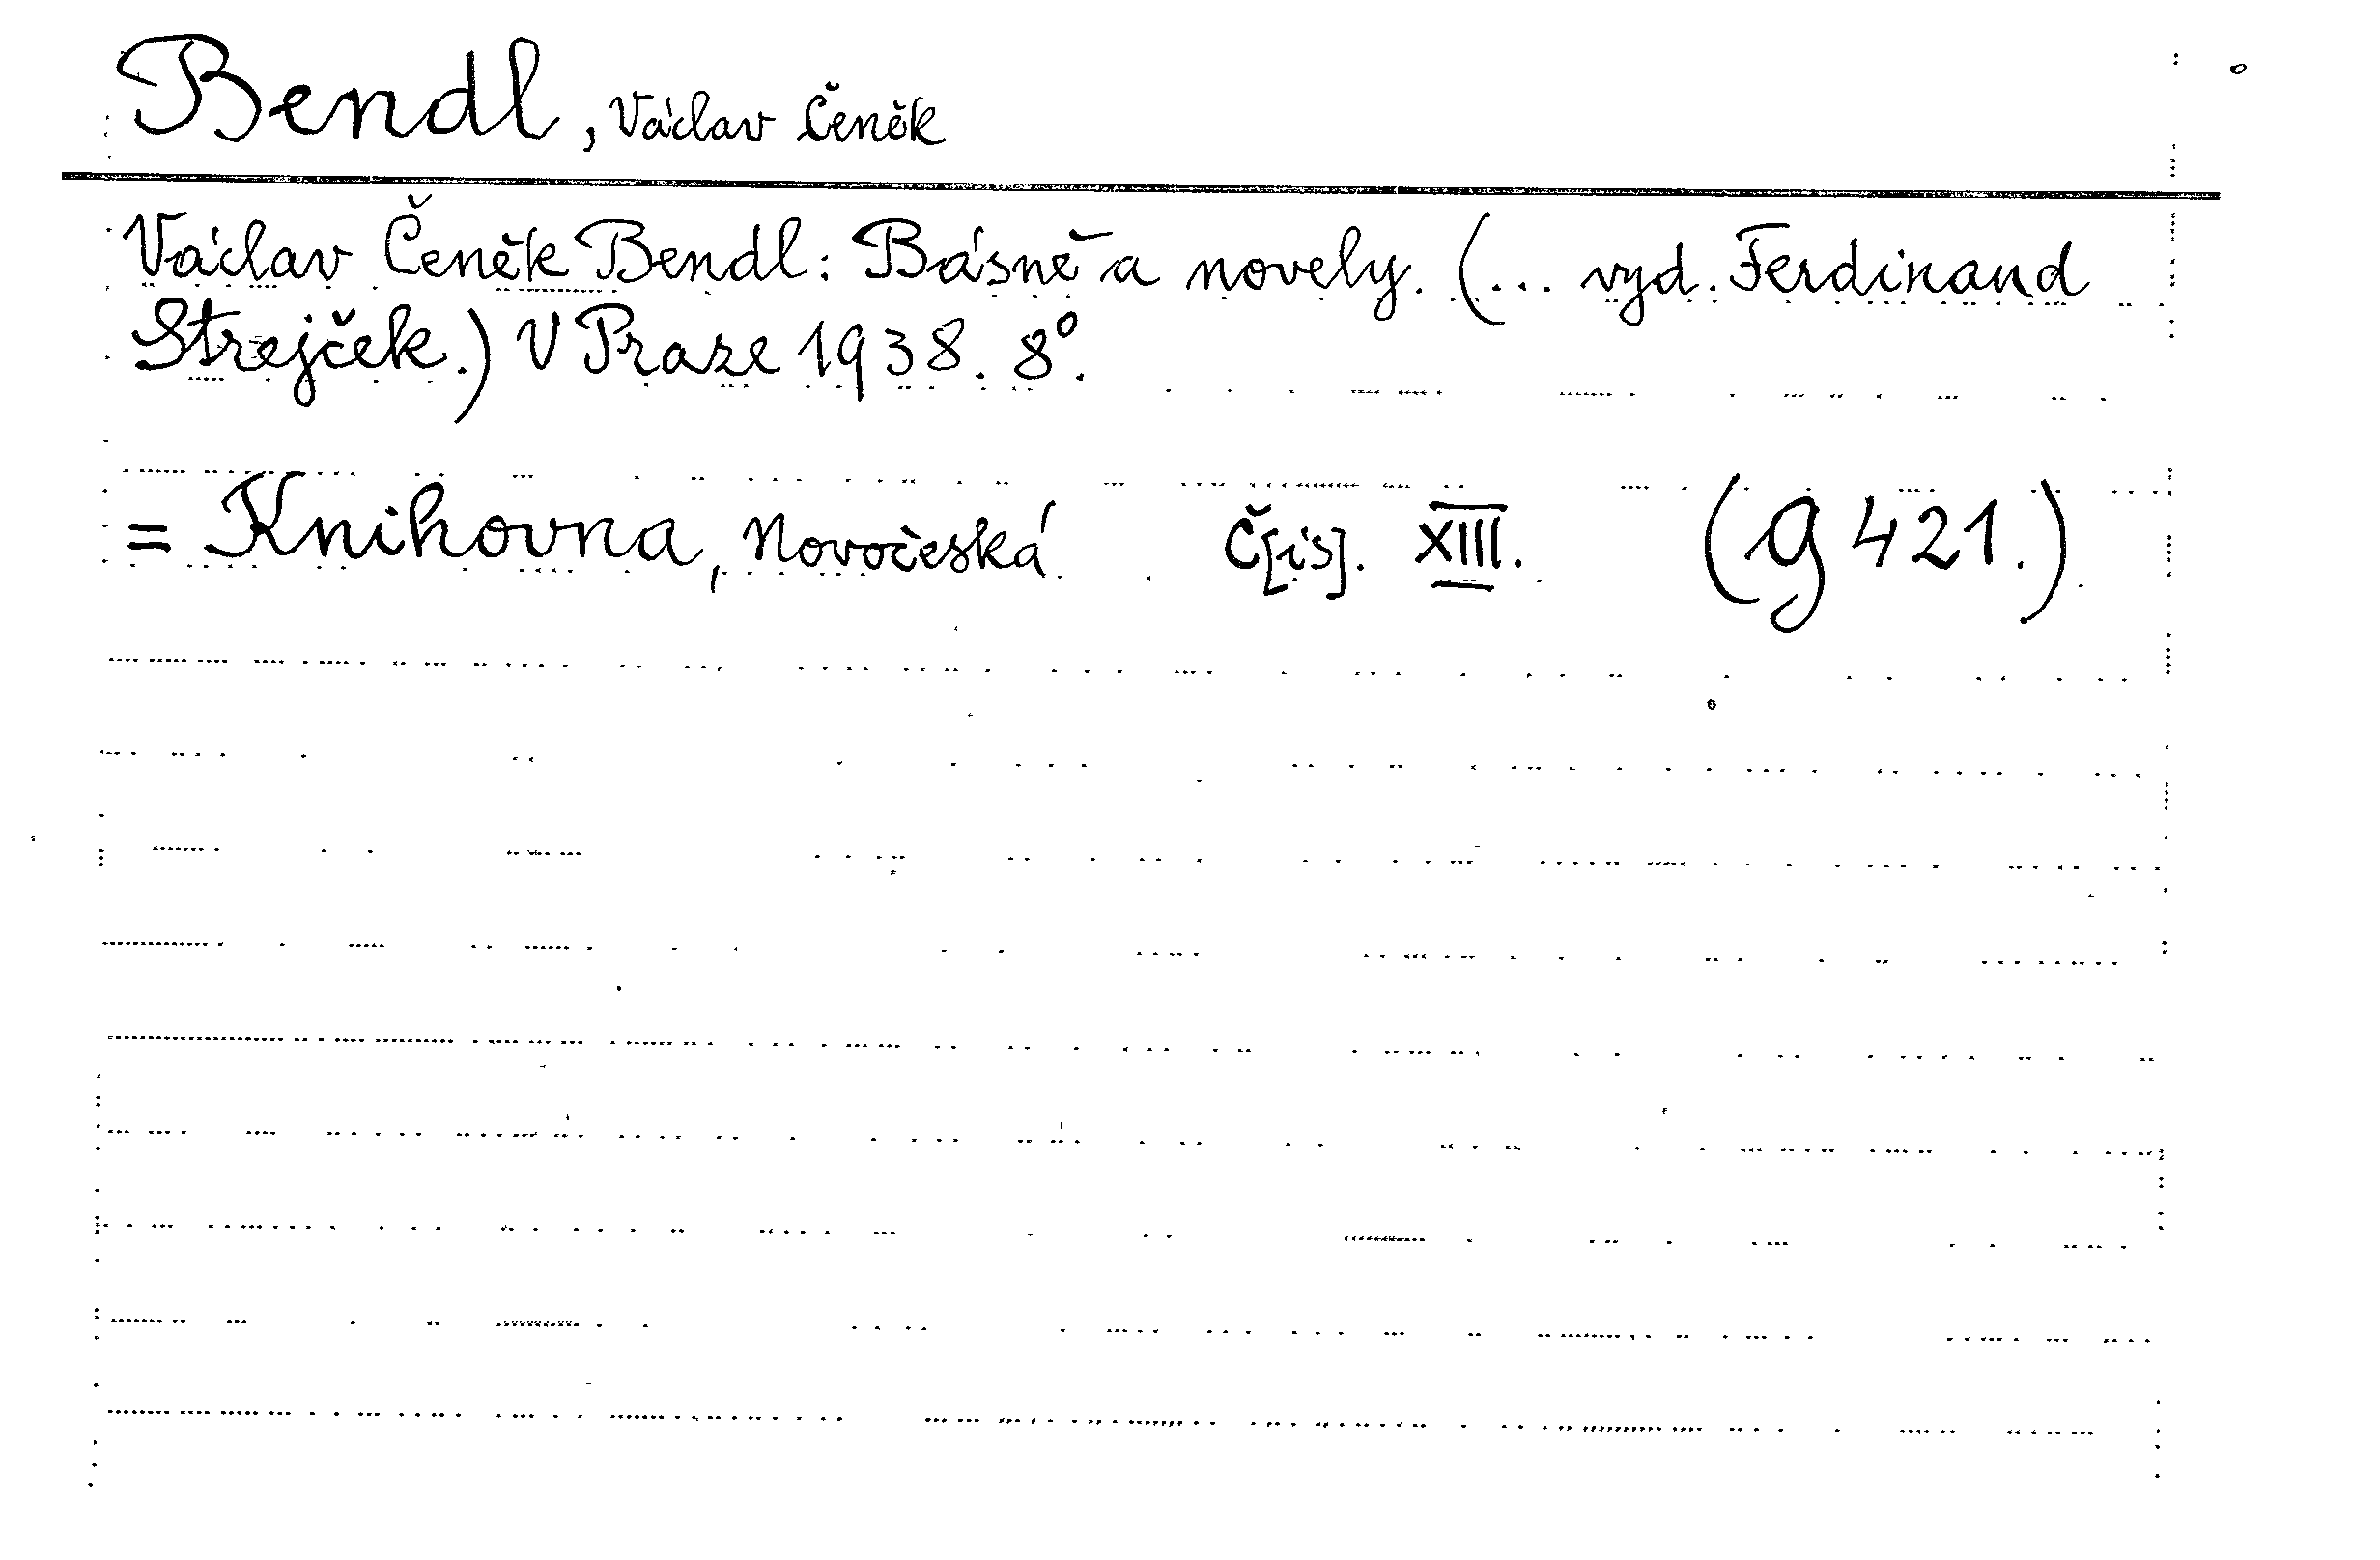 Bendl, Václav Čeněk
Václav Čeněk Bendl: Básně a novely. (... vyd. Ferdinand
Strejček.) V Praze 1938. 8°.
= Knihovna, Novočeská Č[ís]. XIII. (g 421.)